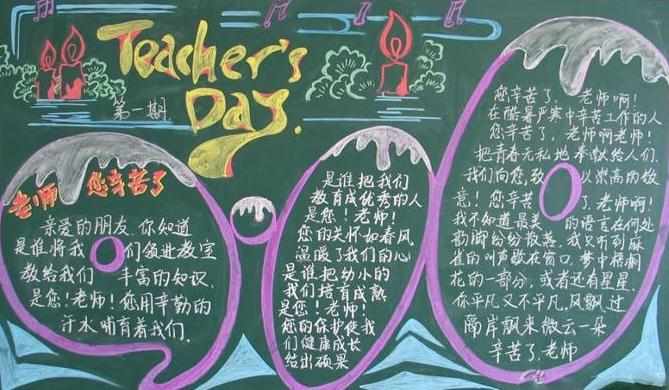 Teacher's
Day.
第一期
老师 您辛苦了
亲爱的朋友.你知道
是谁将我们领进教室
教给我们 丰富的知识.
是您!老师!您用辛勤的
汗水哺育着我们.
是谁把我们
教育成优秀的人
是您!老师!
您的关怀如春风
温暖了我们的心
是谁把幼小的
我们培育成熟
是您!老师!
您的保护使我
们健康成长
给出硕果
您辛苦了,老师啊!
在酷暑严寒中辛苦工作的人
您辛苦了,老师啊老师!
把青春无私地奉献给人们.
我们向您,致 以崇高的敬
意!您辛苦 了.老师啊!
我不知道最美 的语言在何处
纷纷散落.我又听到麻
雀的叫声敲在窗口.梦中梧桐
花的一部分,或者还有星星.
你平凡又不平凡.风飘过
隔岸飘来微云一朵
辛苦了.老师